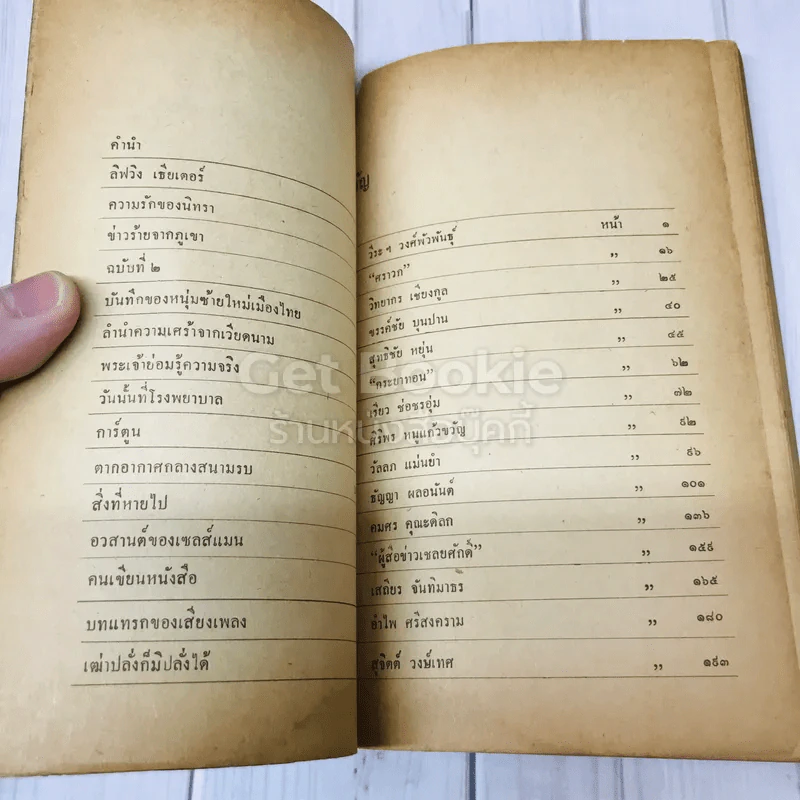 คำนำ
ลิฟวิง เธียเตอร์
ความรักของนิทรา
ข่าวร้ายจากภูเขา
ฉบับที่ ๒
บันทึกของหนุ่มซ้ายใหม่เมืองไทย
ลำนำความเศร้าจากเวียดนาม
พระเจ้าย่อมรู้ความจริง
วันนั้นที่โรงพยาบาล
การ์ตูน
ตากอากาศกลางสนามรบ
สิ่งที่หายไป
อวสานต์ของเซลส์แมน
คนเขียนหนังสือ
บทแทรกของเสียงเพลง
เฒ่าปลั่งก็มิปลั่งได้
วีระ ฯ วงศ์พัวพันธุ์ หน้า ๑
"ศราวก" ,, ๑๖
วิทยากร เชียงกูล ,, ๒๕
ขรรค์ชัย บุนปาน ,, ๔๐
สุทธิชัย หยุ่น ,, ๔๕
"คระยาทอน" ,, ๖๒
เรียว ช่อชรอุ่ม ,, ๗๒
ศิริพร หนูแก้วขวัญ ,, ๙๒
วัลลภ แม่นยำ ,, ๙๖
ธัญญา ผลอนันต์ ,, ๑๐๑
คมศร คุณะดิลก ,, ๑๓๖
"ผู้สื่อข่าวเชลยศักดิ์" ,, ๑๕๙
เสถียร จันทิมาธร ,, ๑๖๕
อำไพ ศรีสงคราม ,, ๑๘๐
สุจิตต์ วงษ์เทศ ,, ๑๙๓
Get Bookie
ร้านหนังสือบุ๊คกี้